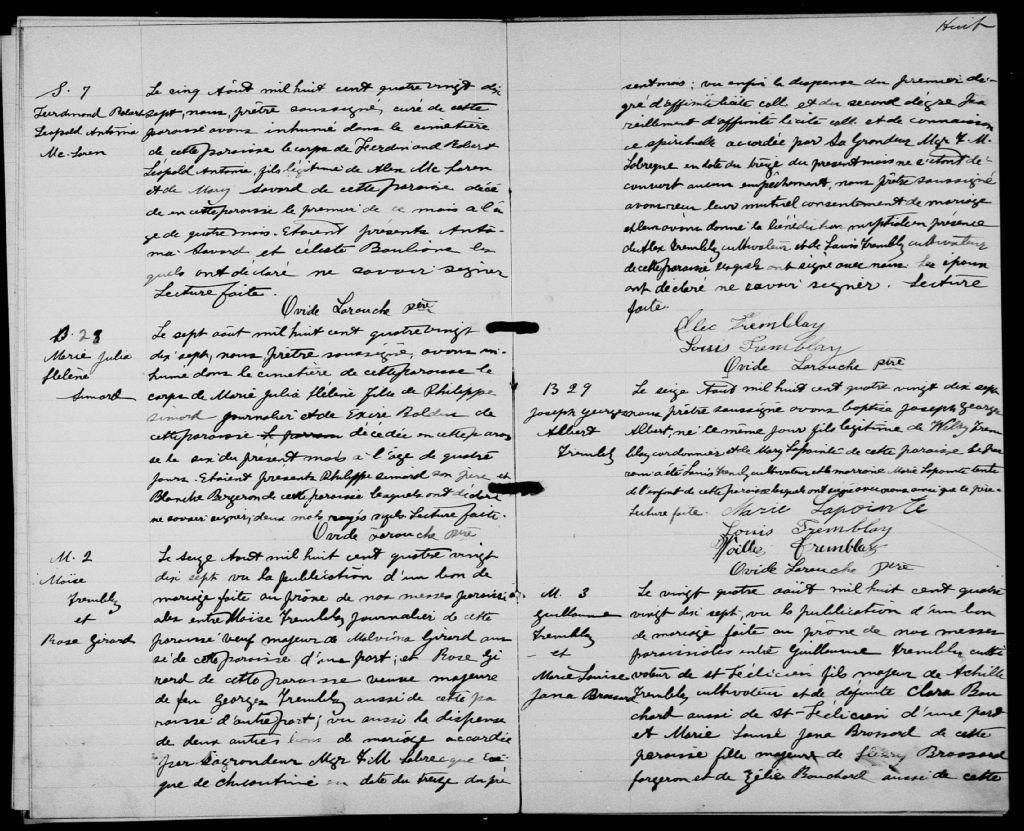 S. 7
Ferdinand Robert
Léopold Antoine
Mc Loren
Le cinq Août mil huit cent quatre vingt dix
sept, nous, prêtre soussigné, curé de cette
paroisse avons inhumé dans le cimetière
de cette paroisse le corps de Ferdinand Robert
Léopold Antoine, fils légitime de Alex Mc Loren
et de Mary Savard de cette paroisse décé
dé en cette paroisse le premier de ce mois a l'â
ge de quatre mois. Etaient présents
Savard et céleste Bouliane les
quels ont déclaré ne savoir signer
Lecture faite.
Ovide Larouche ptre
B. 28
Marie Julia
Hélène
Simard
Le sept août mil huit cent quatre vingt
dix sept, nous, prêtre soussigné, avons in-
humé dans le cimetière de cette paroisse le
corps de Marie Julia Hélène fille de Philippe
Simard journalier et de Bolduc de
cette paroisse décédée en cette parois
se le six du présent mois a l'âge de quatre
jours. Etaient présents Philippe simard son père et
Blanche Bergeron de cette paroisse lesquels ont déclaré
ne savoir signer; deux mots rayés nuls. Lecture faite.
Ovide Larouche ptre
M. 2
Moïse
Trembly
et
Rose Girard
Le seize Août mil huit cent quatre vingt
dix sept vu la publication d'un ban de
mariage faite au prône de nos messes paroissi
ales entre Moïse Trembly journalier de cette
paroisse veuf majeur de Malvina Girard aus
si de cette paroisse d'une part; et Rose Gi
rard de cette paroisse veuve majeure
de feu Georges Trembly aussi de cette pa
roisse d'autre part; vu aussi la dispense
de deux autres bans de mariage accordée
par Sa grandeur Mgr T. M Labrecque évê
que de chicoutimi en date du treize du pré
Huit
sent mois; vu enfin la dispense du premier de-
gré d'affinité licite coll. et du second dégré
d'affinité licite coll. et de connaissan
ce spirituelle accordée par Sa Grandeur Mgr T. M.
Labreque en date du treize du present mois ne s'étant dé-
couvert aucun empêchement, nous prêtre soussigné
avons reçu leur mutuel consentement de mariage
et leur avons donné la bénédiction nuptiale en présence
de Alex Trembly cultivateur et de Louis Trembly cultivateur
de cette paroisse lesquels ont signé avec nous. Les époux
ont déclaré ne savoir signer. Lecture
faite.
Alec Tremblay
Louis Tremblay
Ovide Larouche ptre
B 29
Joseph George
Albert
Trembly
Le seize Août mil huit cent quatre vingt dix sept
nous prêtre soussigné avons baptisé Joseph George
Albert, né le même jour fils légitime de Willey Trem
bley cordonnier et de Mary Lapointe de cette paroisse. Le par
rain a été Louis Trembly cultivateur et la marraine Marie Lapointe tante
de l'enfant de cette paroisse lesquels ont signé avec nous ainsi que le père
Lecture faite. Marie Lapointe
Louis Tremblay
Tremblay
Ovide Larouche ptre
M. 3
Guillaume
Trembly
et
Marie Louise
Jana Brossard
Le vingt quatre août mil huit cent quatre
vingt dix sept, vu la publication d'un ban
de mariage faite au prône de nos messes
paroissiales entre Guillaume Trembley culti
vateur de st Félicien fils majeur de Achille
Trembly, cultivateur et de défunte Clara Bou
chard aussi de st-Félicien d'une part
et Marie Louise Jana Brossard de cette
paroisse fille majeure de Brossard
forgeron et de Zélie Bouchard aussi de cette